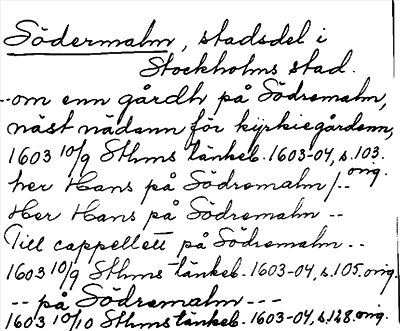 Södermalm, stadsdel i
Stockholms stad.
--om enn gårdh på Södremalm,
näst nädann för kyrkiegårdenn,
1603 10/9 Sthms tänkeb. 1603-04, s. 103.
orig.
her Hans på Södremalm /--
Her Hans på Södremalm --
Till cappellett på Södremalm --
1603 10/9 Sthms tänkeb. 1603-04, s. 105. orig.
-- på Södremalm ---
1603 10/10 Sthms tänkeb. 1603-04, s. 128. orig.